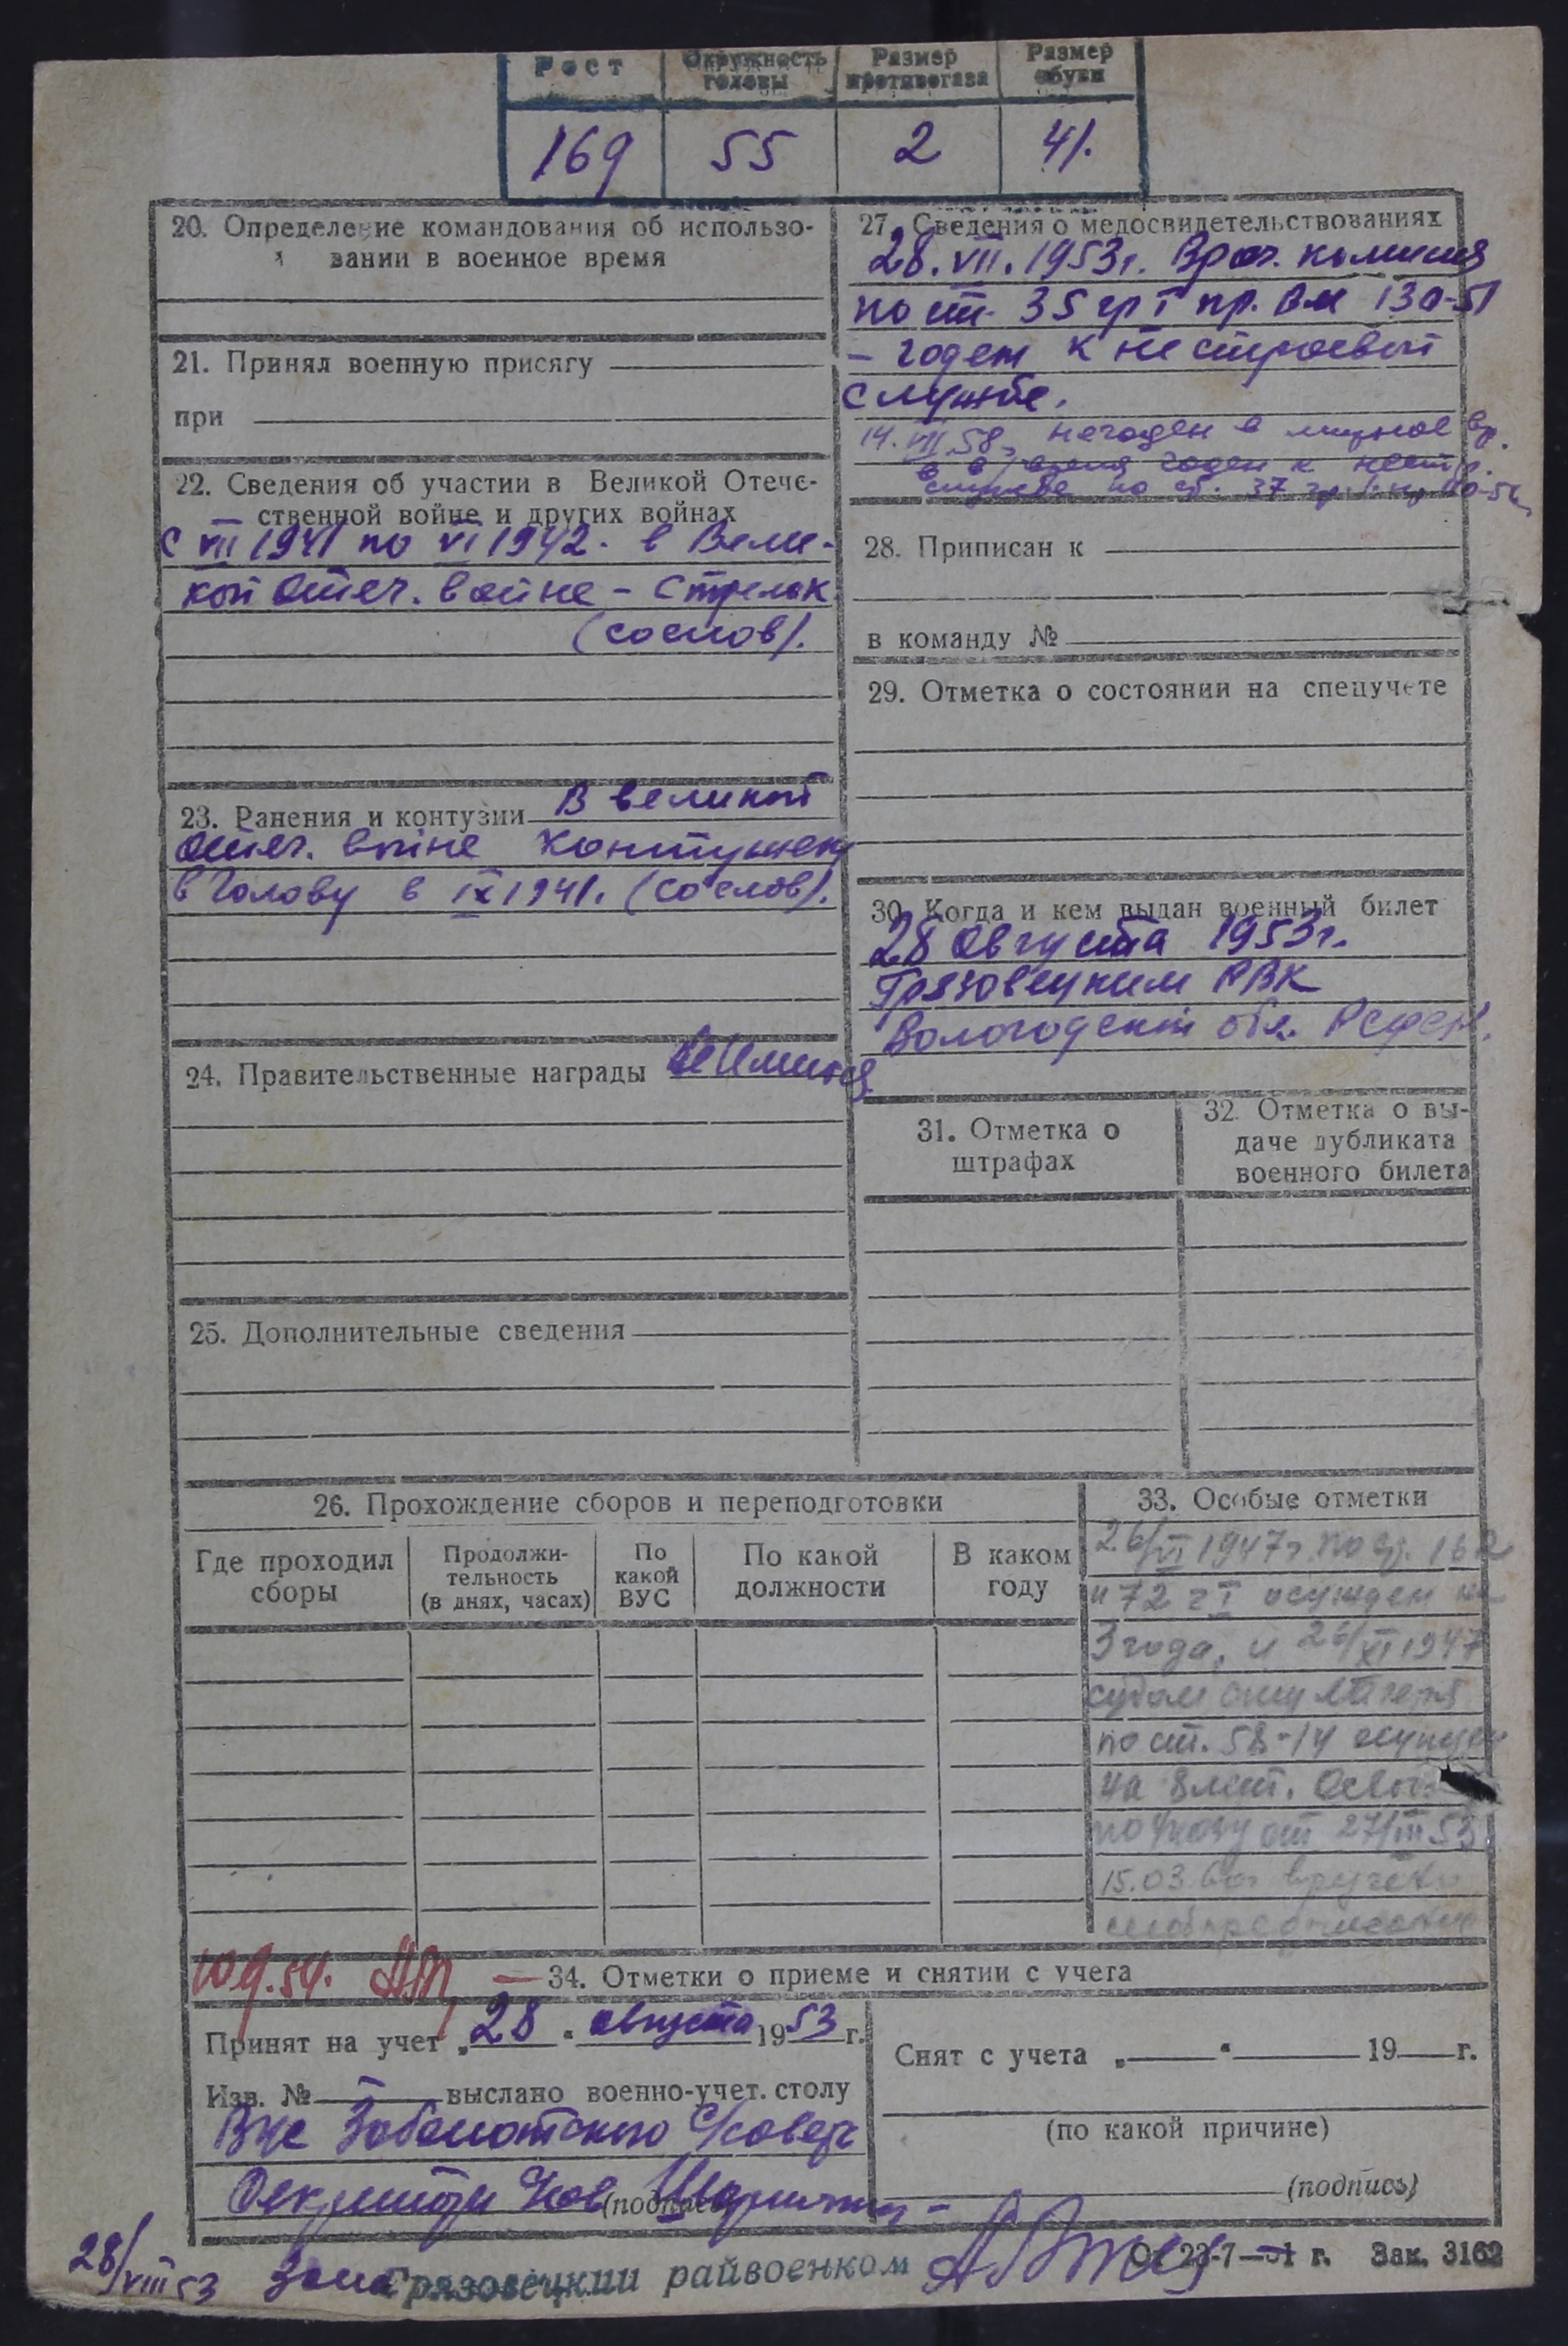 Рост
Окружность головы
Размер противогаза
Размер обуви
169
55
2
41.
20. Определение командования об использо-
вании в военное время
21. Принял военную присягу
при
22. Сведения об участии в Великой Отече-
ственной войне и других войнах
с VII 1941 по VI 1942. в Вели-
кой Отеч. войне - Стрелок
(со слов).
23. Ранения и контузии В великой
Отеч. войне контужен
в голову в IX 1941. (со слов).
24. Правительственные награды не имеется
25. Дополнительные сведения
27. Сведения о медосвидетельствованиях
28. VII. 1953г. Врач. комиссия
по ст. 35 гр I пр. ВМ 130-51
- годен к нестроевой
службе.
14. VII 58г. негоден в мирное вр.
в в/время годен к нестр.
службе по ст. 37 гр. I пр
28. Приписан к
в команду №
29. Отметка о состоянии на спецучете
30. Когда и кем выдан военный билет
28 августа 1953г.
Грязовецким РВК
Вологодской обл. РСФСР.
31. Отметка о
штрафах
32. Отметка о вы-
даче дубликата
военного билета
26. Прохождение сборов и переподготовки
Где проходил
сборы
Продолжи-
тельность
(в днях, часах)
По
какой
ВУС
По какой
должности
В каком
году
33. Особые отметки
26/VI 1947г по ст. 162
и 72 ч I осужден на
3 года, и 26/XI 1947
судом лагеря
по ст. 58-14 осужден
на 8 лет.
по Указу от 27/III 53
15.03.60г вручено
моб предписание
10.9.54.
34. Отметки о приеме и снятии с учета
Принят на учет „28“ августа 1953 г.
Изв. № — выслано военно-учет. столу
Заболотского с/совета
(подпись)
Снят с учета „ “ 19 г.
(по какой причине)
(подпись)
28/VIII 53
Грязовецкий райвоенком
От 23-7-51 г. Зак. 3162